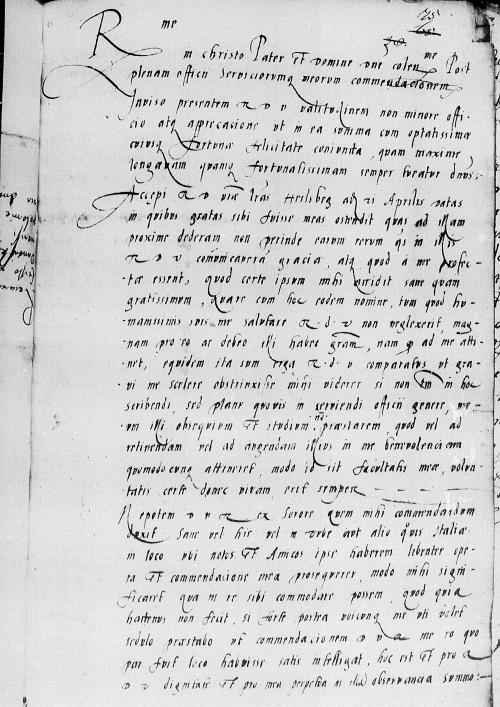 75
R me
in christo Pater Et Domine dne colen me Post
plenam officii Servitiorumq meorum commendationem
Inviso presentem R D V valitudinem non minore offi-
cio atq apprecatione ut in ea summa cum optatissimæ
cuiusq fortunæ felicitate coniuncta, quam maxime
longævam quamq fortunatissimam semper tueatur dnus:
Accepi R D V lras Heilsberg Aprilis datas
in quibus gratas sibi fuisse meas ostendit quas ad illam
proxime dederam non perinde earum rerum qs in illis
R D V comunicavera gracia, atq quod a me profec-
tæ essent, quod certe ipsum mihi sane quam
gratissimum, quare cum hoc eodem nomine, tum quod hu-
manissimis suis me salutare R. d. V non neglexerit, mag-
nam pro eo ac debeo illi habeo gram, nam ad me atti-
net, equidem ita sum erga R. d. V comparatus ut gra-
vi me scelere obstrinxisse mihi viderer si non tm in hoc
scribendi, sed plane quovis in serviendi officii genere, me-
um illi obsequium Et studium præstarem, quod vel ad
retinendam vel ad augendam illius in me benevolenciam
quomodocunq attineret, modo id sit facultatis meæ, volun-
tatis certe donec vivam, erit semper
Nepotem D V R ex Sorore quem mihi comendandum
duxit sane vel hic vel in urbe aut alio quis Italiæ
in loco ubi notos Et Amicos ipse haberem libenter ope-
ra Et commendacione mea prosequerer, modo mihi signi-
ficaret qua in re sibi commodare possem, quod quia
hactenus non fecit, si forte postea ubicunq me uti volet
sedulo præstabo ut commendacionem D V R me eo quo
par fuit loco habuisse satis intelligat, hoc est Et pro R
D V dignitate Et pro mea perpetua in illa observancia summo:-